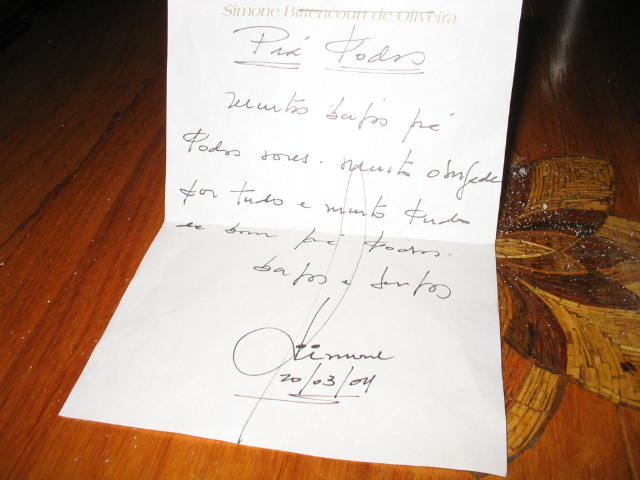 Simone Bittencourt de Oliveira
Prá Todos
Muitos bejos prá
Todos voces. Muito obrigada
por tudo e muito tudo
de bom prá todos.
bejos e bejos
Simone
20/03/04